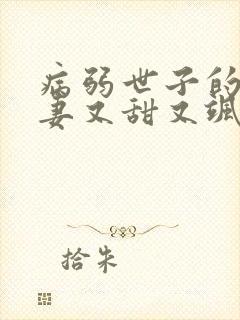 病弱世子的
妻又甜又飒
拾朱